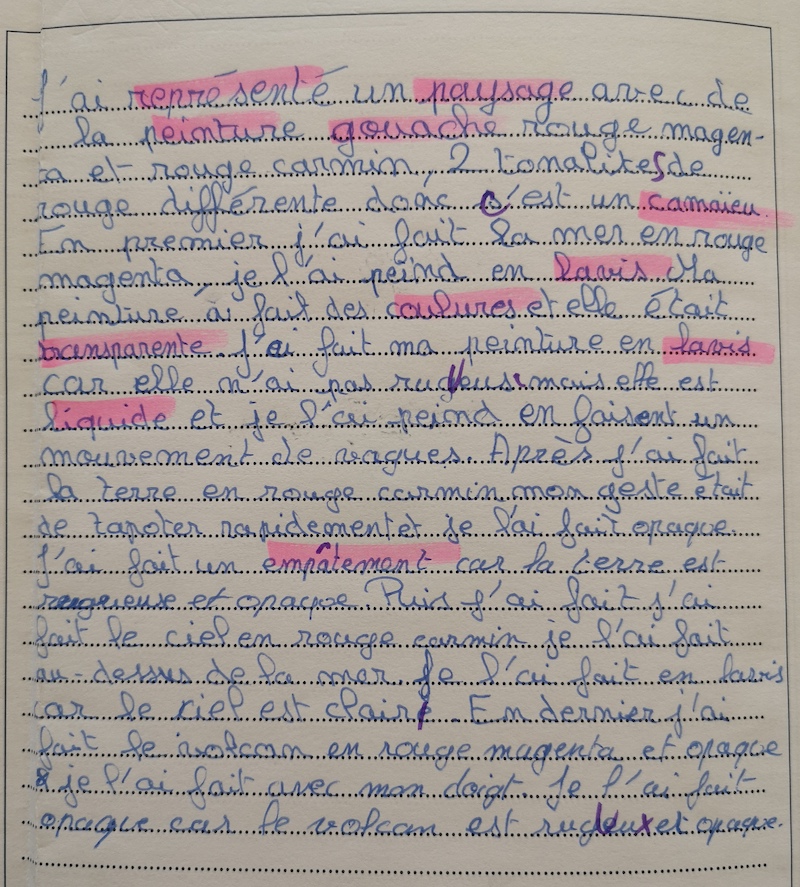 J'ai représenté un paysage avec de
la peinture gouache rouge magen-
ta et rouge carmin, 2 tonalités de
rouge différente donc c'est un camaïeu.
En premier j'ai fait la mer en rouge
magenta, je l'ai peind en lavis Ma
peinture a fait des coulures et elle était
transparente. J'ai fait ma peinture en lavis
car elle n'ai pas rugueuse mais elle est
liquide et je l'ai peind en faisent un
mouvement de vagues. Après j'ai fait
la terre en rouge carmin mon geste était
de tapoter rapidement et je l'ai fait opaque.
J'ai fait un empâtement car la terre est
rugueuse et opaque. Puis j'ai fait j'ai
fait le ciel en rouge carmin je l'ai fait
au-dessus de la mer. Je l'ai fait en lavis
car le ciel est clair. En dernier j'ai
fait le volcan en rouge magenta et opaque
je l'ai fait avec mon doigt. Je l'ai fait
opaque car le volcan est rugueux et opaque.